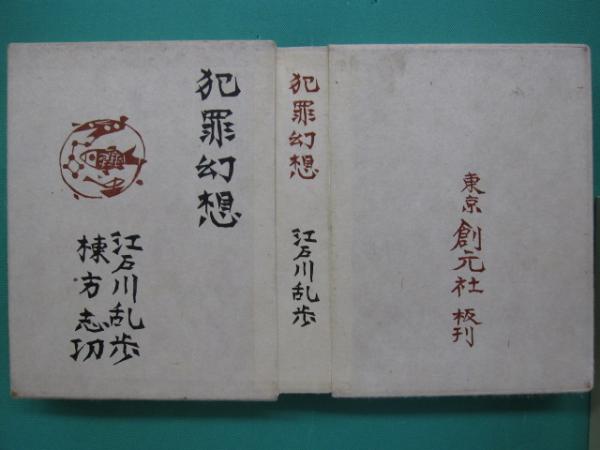 犯罪幻想
江戸川乱歩
棟方志功
犯罪幻想
江戸川乱歩
東京 創元社 板刊